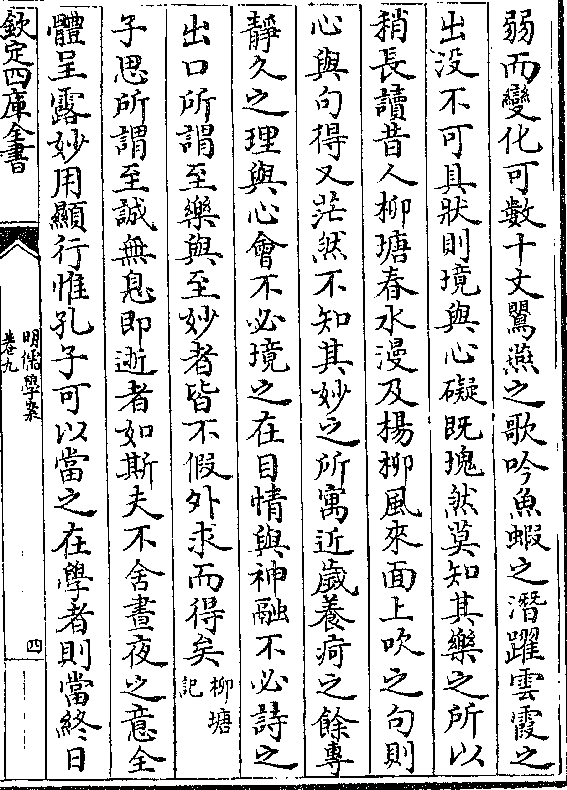 弱而變化可數十丈鷖鷀之歌吟魚蝦之潛躍雲霞之
出没不可具狀則境與心礙既塊然莫知其樂之所以
稍長讀昔人柳塘春水漫及楊柳風來面上吹之句則
心與句得又茫然不知其妙之所寓近歲養疴之餘專
靜久之理與心會不必境之在目情與神融不必詩之
出口所謂至樂與至妙者皆不假外求而得矣柳塘記
子思所謂至誠無息即逝者如斯夫不舍晝夜之意全
體呈露妙用顯行惟孔子可以當之在學者則當終日
欽定四庫全書
明儒學案
卷九
四